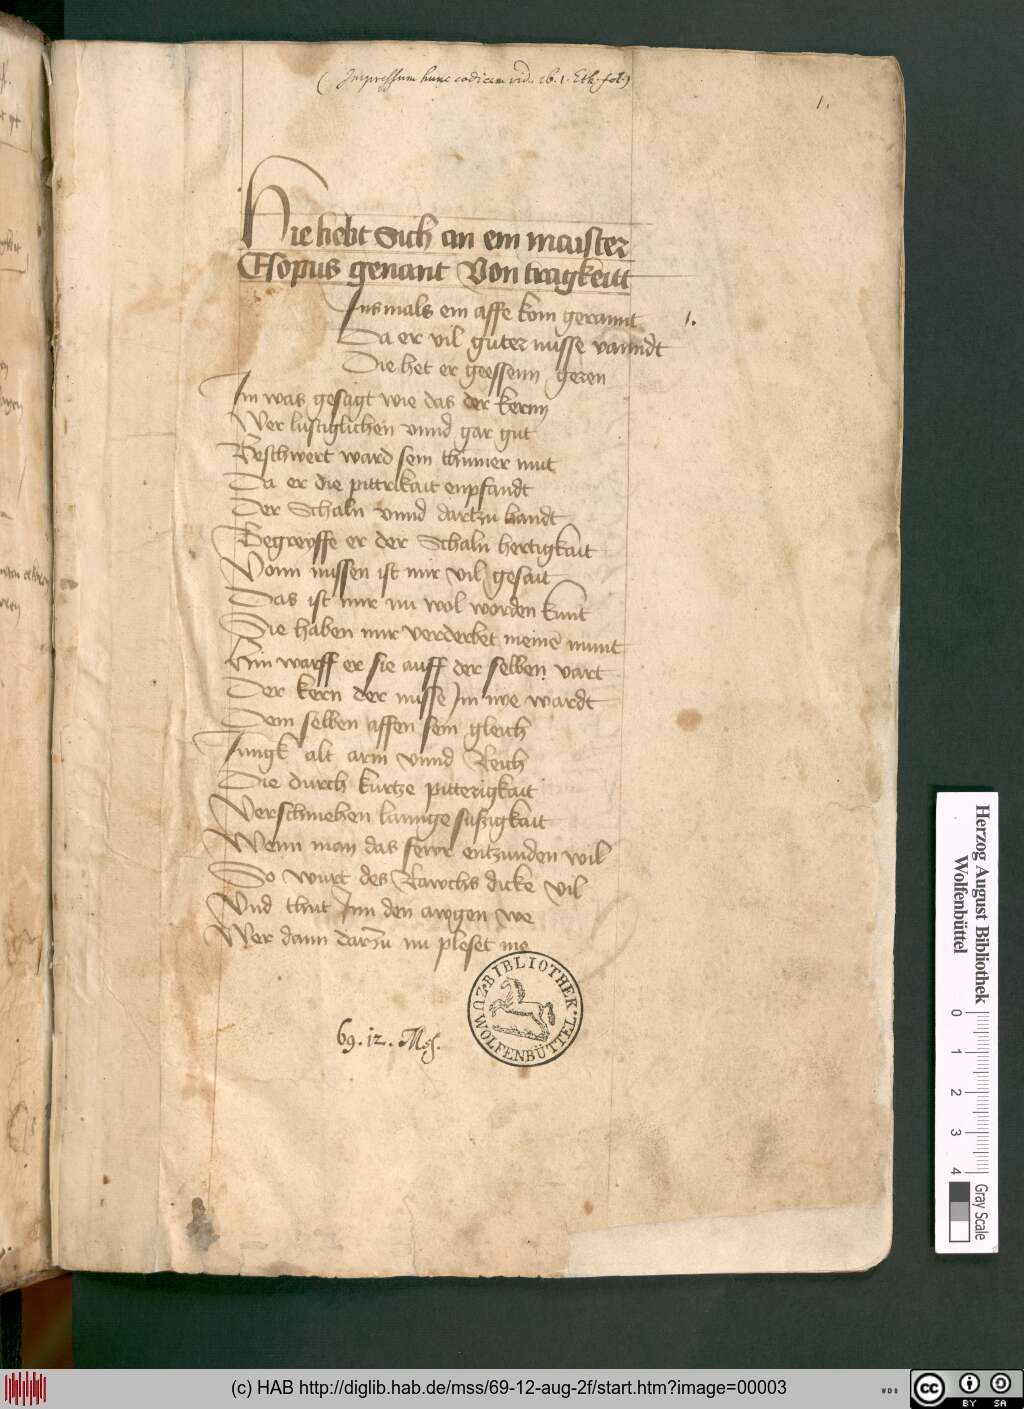 (Impressum hunc codicem vid. 16. 1. Eth. fol.)
1.
Hie hebt Sich an ein maister
Esopus genant Von tragkeitt
Insmals ein affe kom gerannt
1.
Da er vil guter nusse vanndt
Die het er geessenn geren
Im was gesagt wie das der kernn
Wer lustiglichen vnnd gar gut
Beschwert ward sein thumer mut
Da er die pittrikait enpfandt
Der Schaln vnnd dartzu handt
Begreyffe er der Schaln hertigkait
Vonn nussen ist mir vil gesait
Das ist mir nu wol worden kunt
Die haben mir verderbet meinē munt
Hin warff er sie auff der selben vart
Der kern der nusse Im nye wardt
Dem selben affen sein gleich
Jungk alt arm vnnd Reich
Die durch kurtze pitterigkait
Verschmehen lannge sußigkait
Wenn man das fewr entzunden wil
So wurt des Rawchs dicke vil
Vnd thut Inn den awgen we
Wer dann darzu nu pleset me
BIBLIOTHEK. ZU WOLFENBÜTTEL.
69. 12. Msˢ.
Herzog August Bibliothek
Wolfenbüttel
0 1 2 3 4
Gray Scale
(c) HAB http://diglib.hab.de/mss/69-12-aug-2f/start.htm?image=00003
WDB
cc BY SA